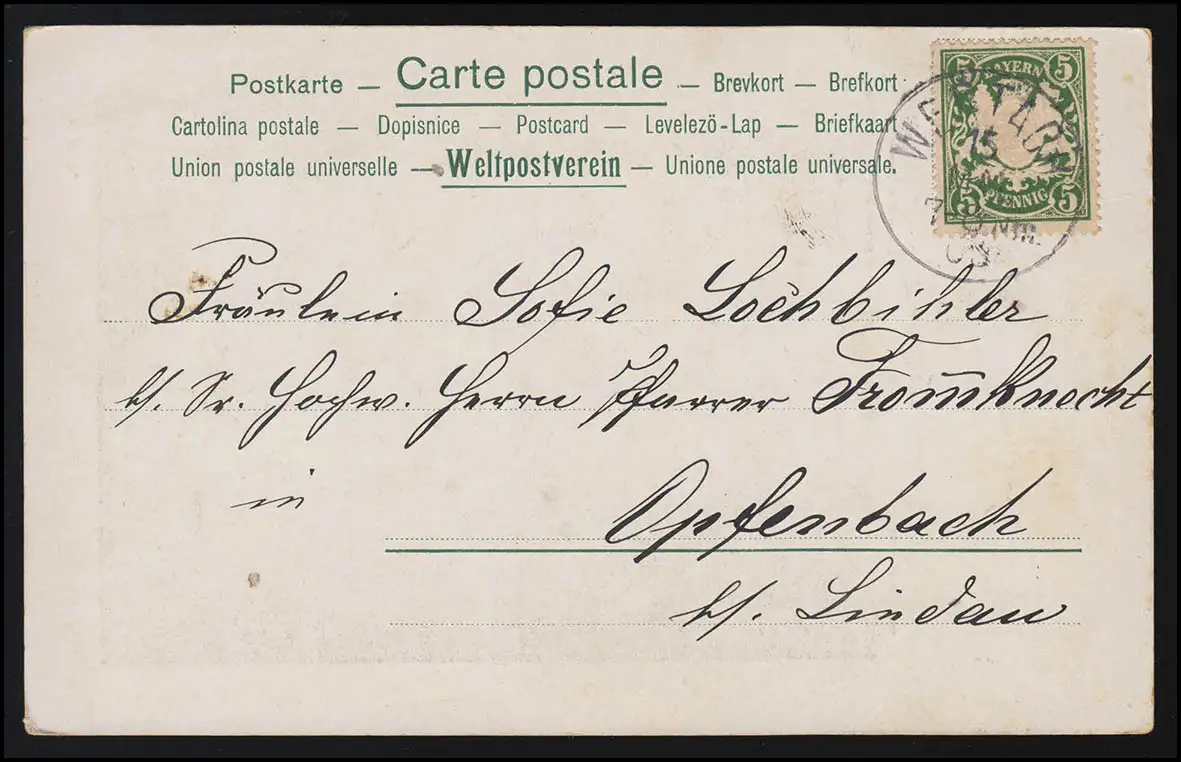 Postkarte — Carte postale — Brevkort — Brefkort
Cartolina postale — Dopisnice — Postcard — Levelezö-Lap — Briefkaart
Union postale universelle — Weltpostverein — Unione postale universale.
5 BAYERN 5
5 PFENNIG 5
15
Fräulein Sofie Lochbihler
b/. Sr. Hochw. Herrn Pfarrer From̅knecht
in
Opfenbach
b/. Lindau